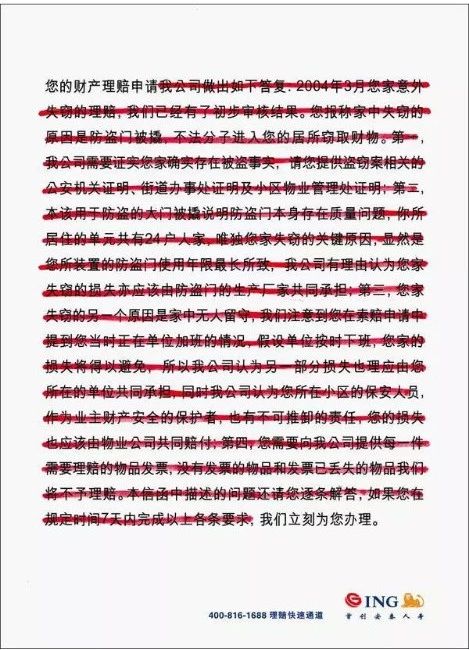 您的财产理赔申请我公司做出如下答复：2004年3月您家意外
失窃的理赔，我们已经有了初步审核结果。您报称家中失窃的
原因是防盗门被撬，不法分子进入您的居所窃取财物。第一，
我公司需要证实您家确实存在被盗事实，请您提供盗窃案相关的
公安机关证明、街道办事处证明及小区物业管理处证明；第二，
本该用于防盗的大门被撬说明防盗门本身存在质量问题，你所
居住的单元共有24户人家，唯独您家失窃的关键原因，显然是
您所装置的防盗门使用年限最长所致，我公司有理由认为您家
失窃的损失亦应该由防盗门的生产厂家共同承担；第三，您家
失窃的另一个原因是家中无人留守，我们注意到您在索赔申请中
提到您当时正在单位加班的情况，假设单位按时下班，您家的
损失将得以避免，所以我公司认为另一部分损失也理应由您
所在的单位共同承担，同时我公司认为您所在小区的保安人员，
作为业主财产安全的保护者，也有不可推卸的责任，您的损失
也应该由物业公司共同赔付；第四，您需要向我公司提供每一件
需要理赔的物品发票，没有发票的物品和发票已丢失的物品我们
将不予理赔。本信函中描述的问题还请您逐条解答，如果您在
规定时间7天内完成以上各条要求，我们立刻为您办理。
ING
首创安泰人寿
400-816-1688 理赔快速通道